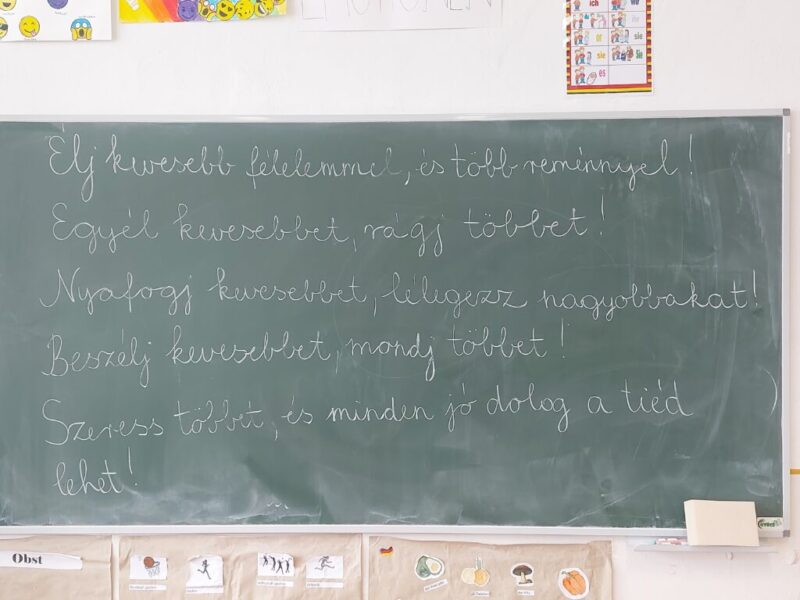 EMOTIONEN
ich
er
sie
sie
Sie
es
Élj kevesebb félelemmel, és több reménnyel!
Egyél kevesebbet, rágj többet!
Nyafogj kevesebbet, lélegezz nagyobbakat!
Beszélj kevesebbet, mondj többet!
Szeress többet, és minden jó dolog a tiéd
lehet!
Obst